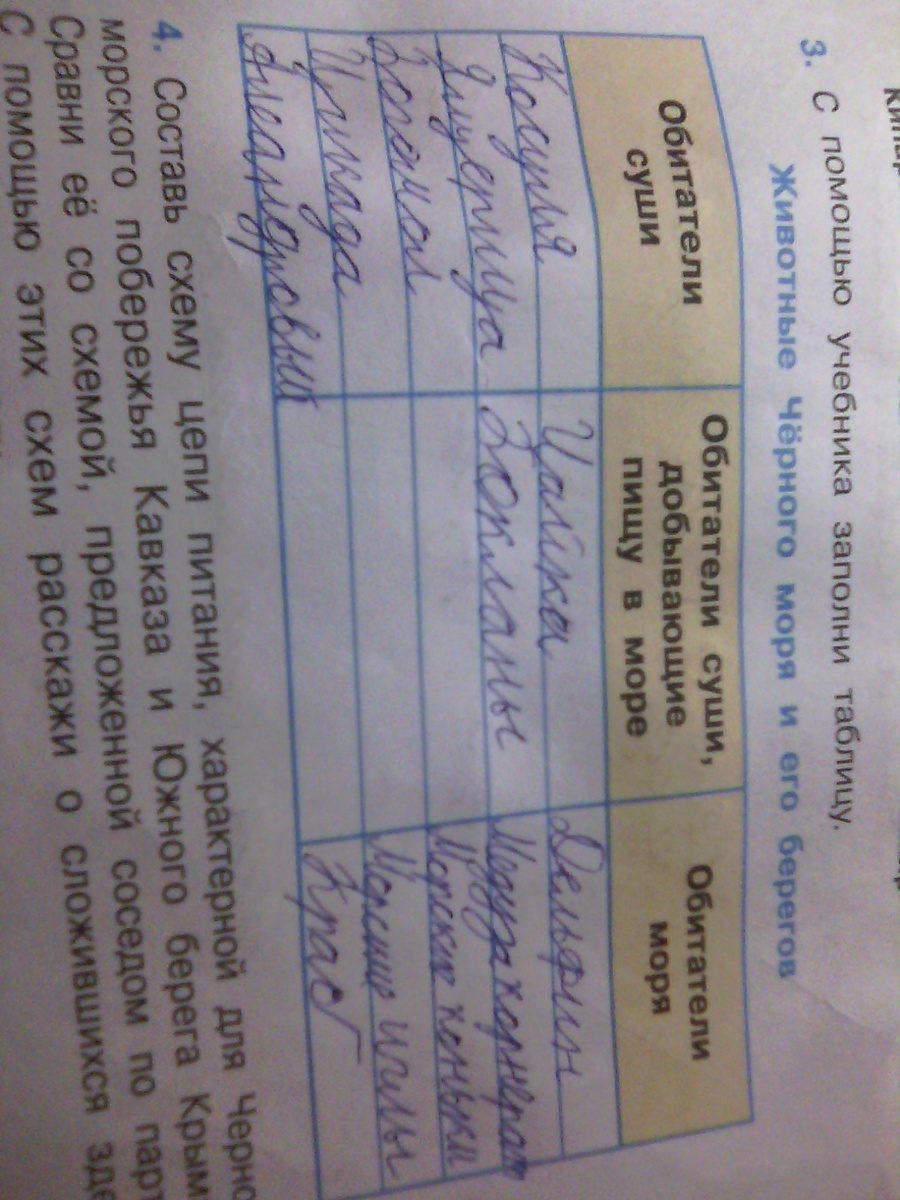 3. С помощью учебника заполни таблицу.
Животные Чёрного моря и его берегов
Обитатели суши
Обитатели суши, добывающие пищу в море
Обитатели моря
Косуля Чайка Дельфин
Ящерица Бакланы Медуза корнерот
Богомол Морские коньки
Цикада Морские иглы
Олеандровый Краб
4. Составь схему цепи питания, характерной для Черно
морского побережья Кавказа и Южного берега Крым
Сравни её со схемой, предложенной соседом по парт
С помощью этих схем расскажи о сложившихся зде